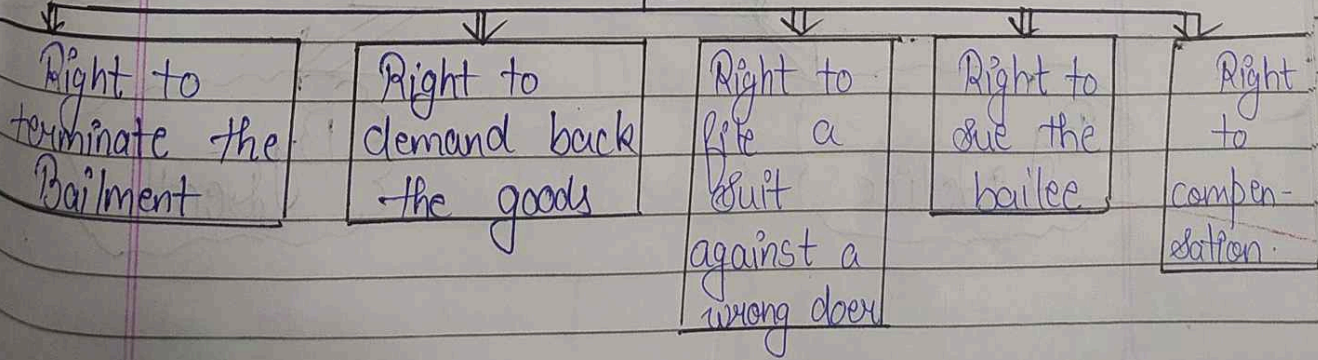 Right to
terminate the
Bailment
Right to
demand back
the goods
Right to
file a
suit
against a
wrong doer
Right to
sue the
bailee
Right
to
compen-
sation.